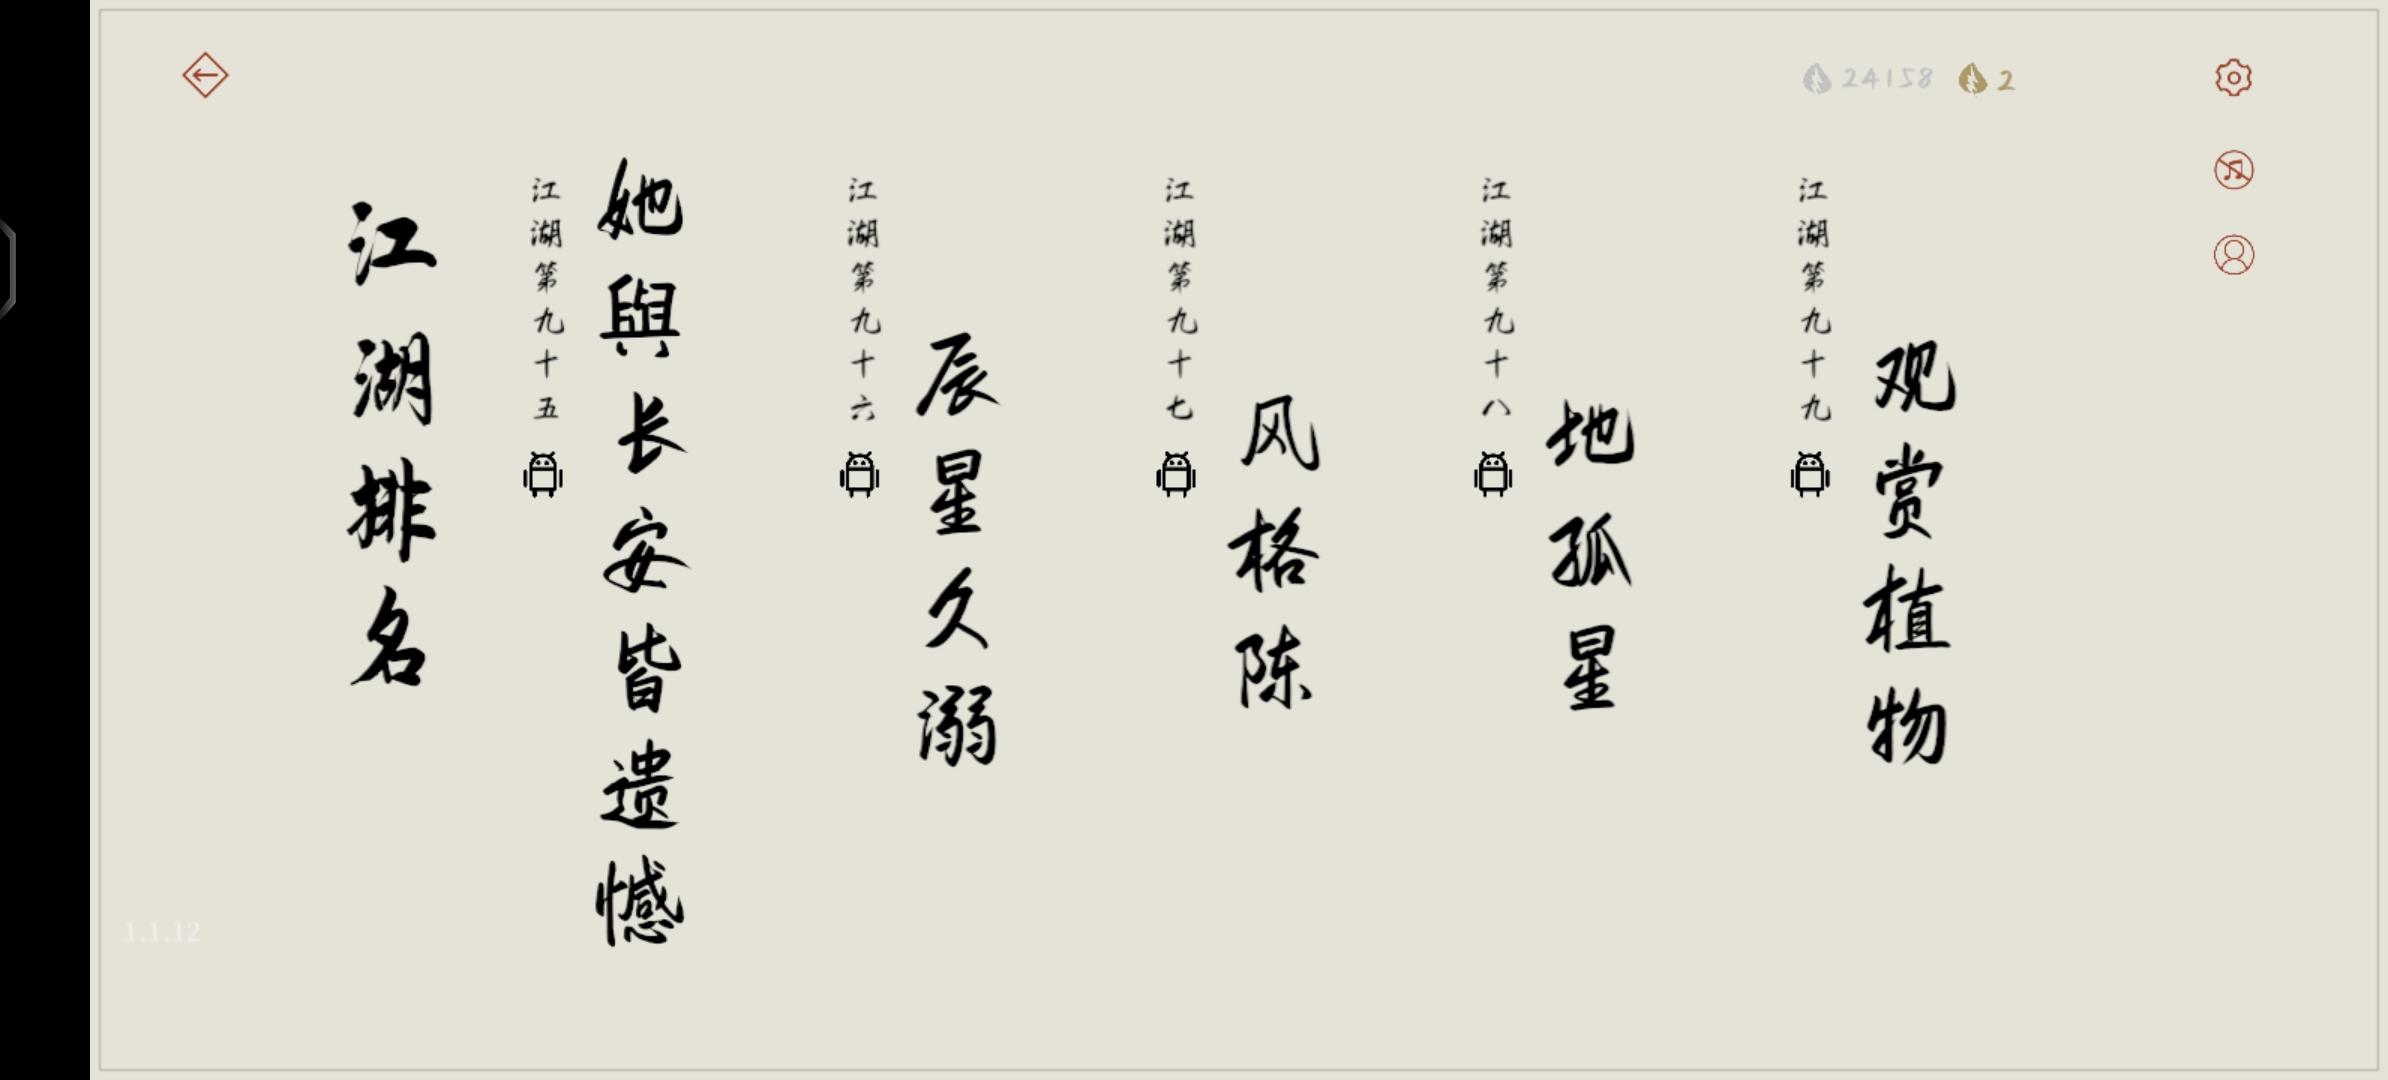 24158
2
江湖排名
江湖第九十五
她與长安皆遗憾
江湖第九十六
辰星久溺
江湖第九十七
风格陈
江湖第九十八
地孤星
江湖第九十九
观赏植物
1.1.12